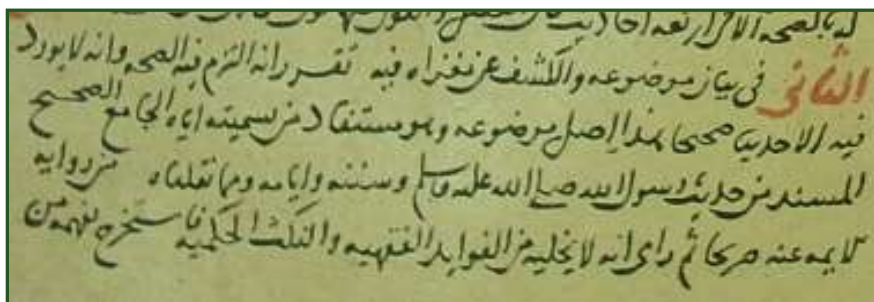 له بالصحة
الثاني في بيان موضوعه والكشف عن مغزاه فيه تقرر انه التزم فيه الصحه وانه لا يورد
فيه الا حديثا صحيحا هذا اصل موضوعه وهو مستفاد من تسميته اياه الجامع الصحيح
المسند من حديث رسول الله صلى الله عليه وسلم وسننه وايامه ومما نقلناه من روايه
الايمه عنه صريحا ثم راى انه لا يخليه من الفوايد الفقهيه والنكت الحكميه فاستخرج بفهمه من